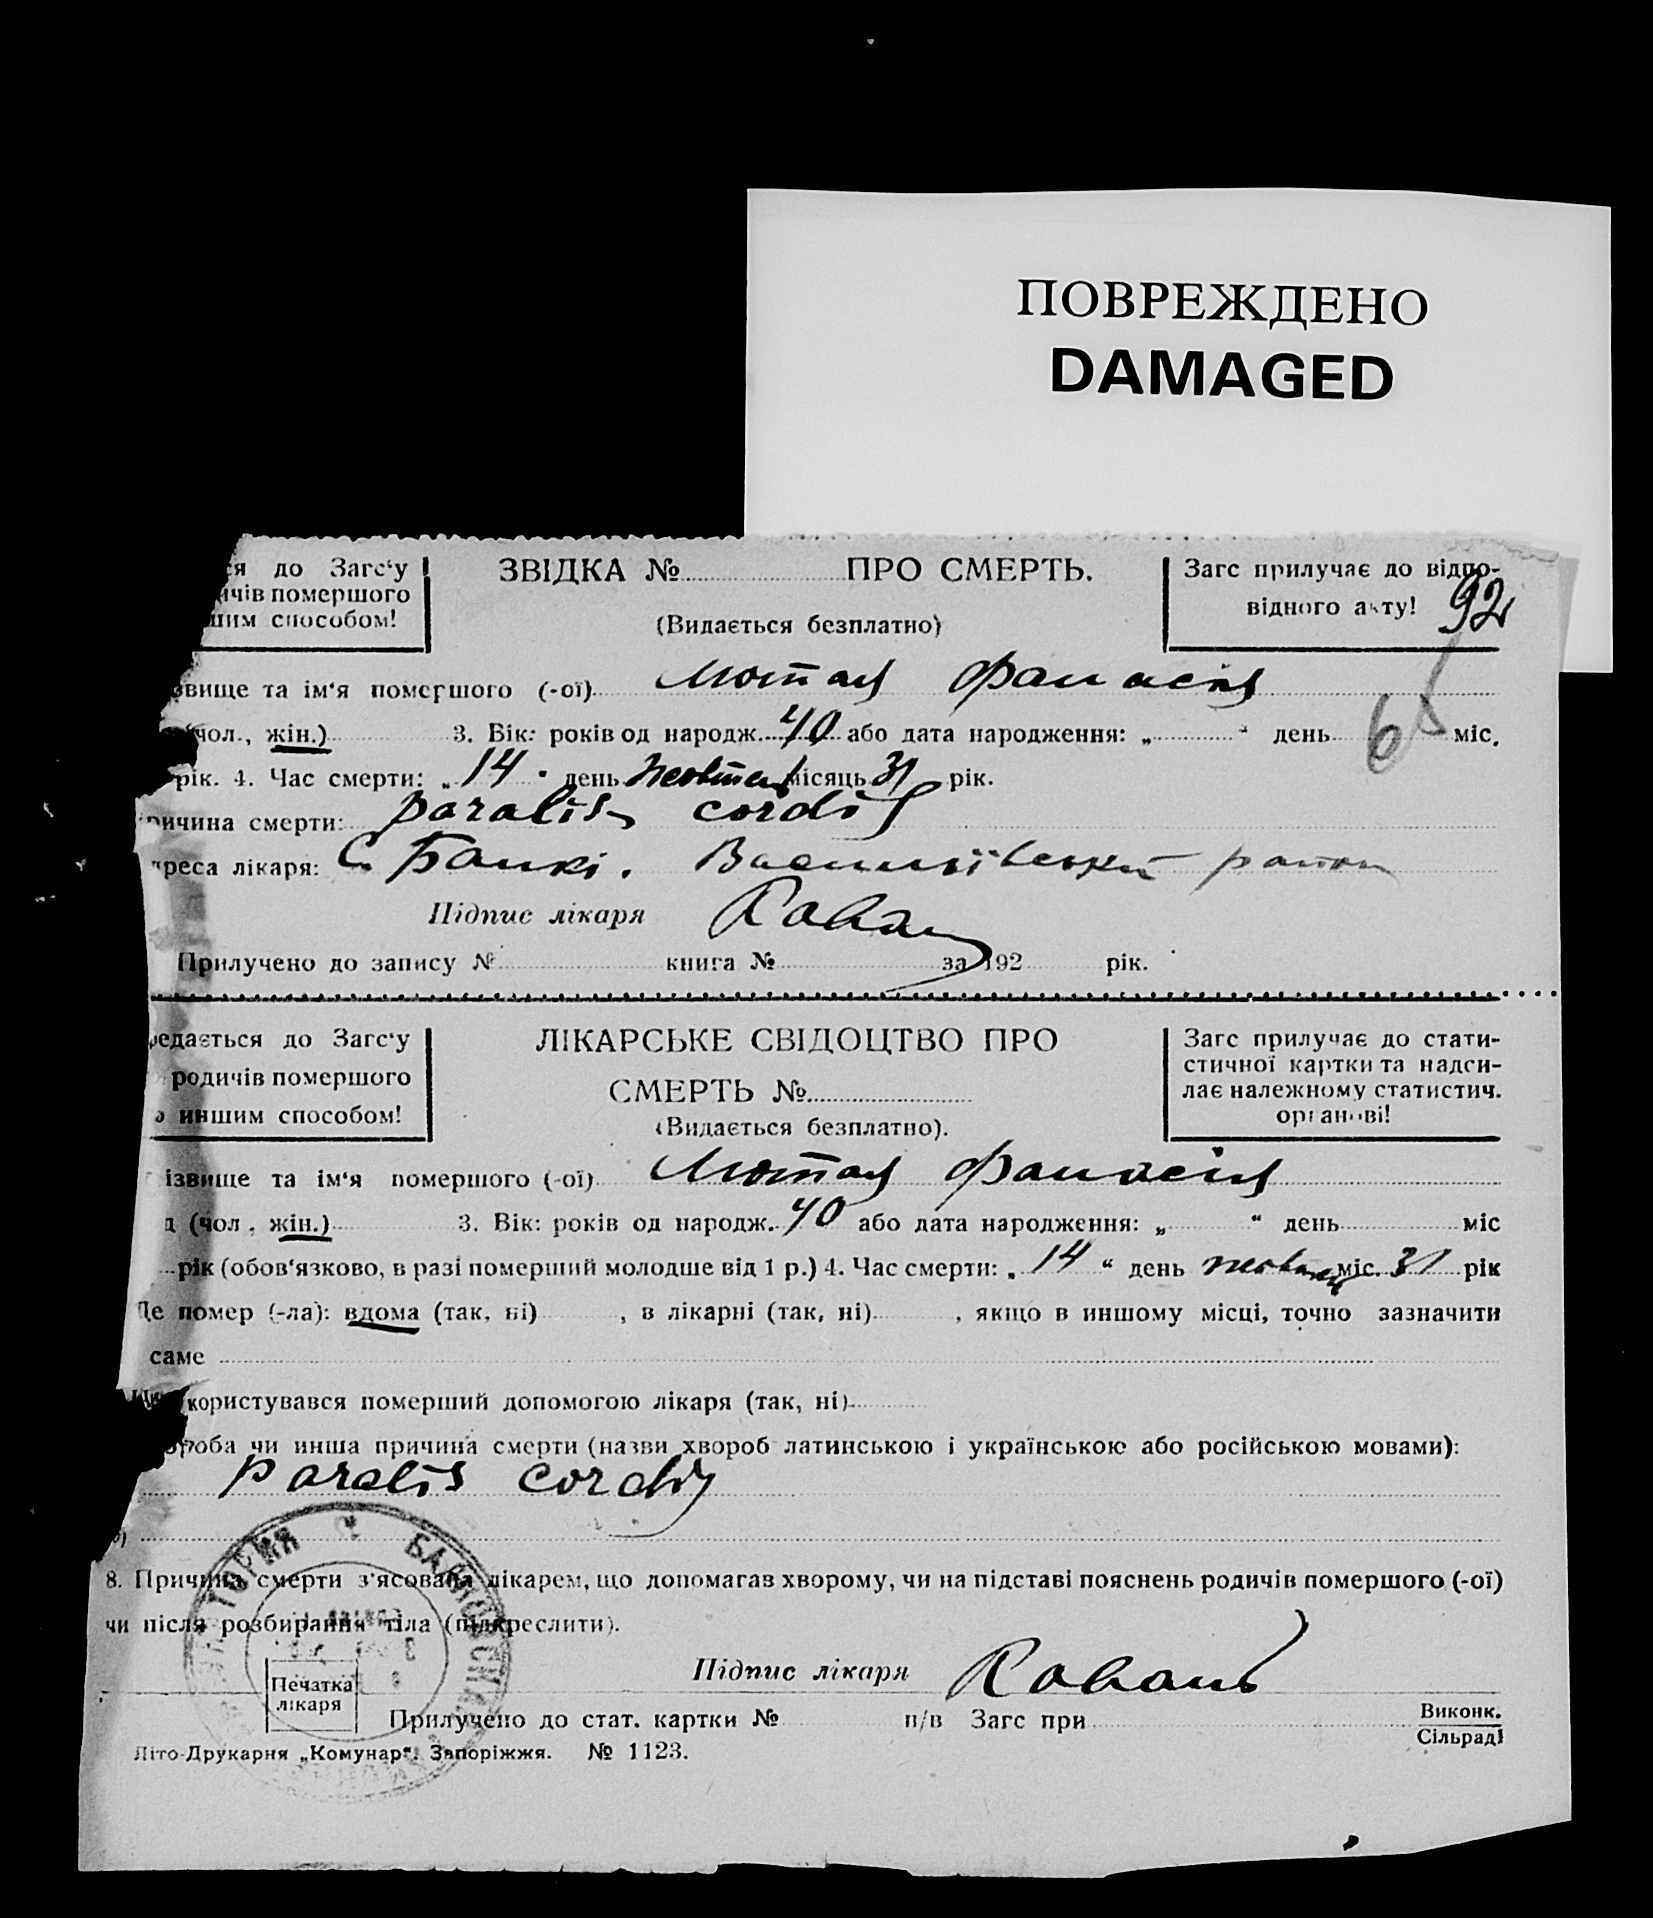 ПОВРЕЖДЕНО
DAMAGED
ся до Загс‘у
ичів помершого
шим способом!
ЗВІДКА № ПРО СМЕРТЬ.
(Видається безплатно)
Загс прилучає до відпо-
відного акту!
92
звище та ім‘я помершого (-ої)
чол., жін.) 3. Вік: років од народж. 40 або дата народження: „ “ день 6 міс.
рік. 4. Час смерти: „ 14 “ день жовтня місяць 31 рік.
ричина смерти: paralis cordis
дреса лікаря: С. Балкі. Васильївський район
Підпис лікаря
Прилучено до запису № книга № за 192 рік.
редається до Загс‘у
родичів помершого
о иншим способом!
ЛІКАРСЬКЕ СВІДОЦТВО ПРО
СМЕРТЬ №
(Видається безплатно).
Загс прилучає до стати-
стичної картки та надси-
лає належному статистич.
органові!
ізвище та ім‘я помершого (-ої)
(чол., жін.) 3. Вік: років од народж. 40 або дата народження: „ “ день міс
рік (обов‘язково, в разі померший молодше від 1 р.) 4. Час смерти: „ 14 “ день жовтня міс. 31 рік
Де помер (-ла): вдома (так, ні) , в лікарні (так, ні) , якщо в иншому місці, точно зазначити
саме
користувався померший допомогою лікаря (так, ні)
роба чи инша причина смерти (назви хвороб латинською і українською або російською мовами):
paralis cordis
8. Причина смерти з‘ясована лікарем, що допомагав хворому, чи на підставі пояснень родичів помершого (-ої)
чи після розбирання тіла (підкреслити).
Підпис лікаря
Печатка
лікаря
Прилучено до стат. картки № п/в Загс при
Виконк.
Сільраді
Літо-Друкарня „Комунар“. Запоріжжя. № 1123.